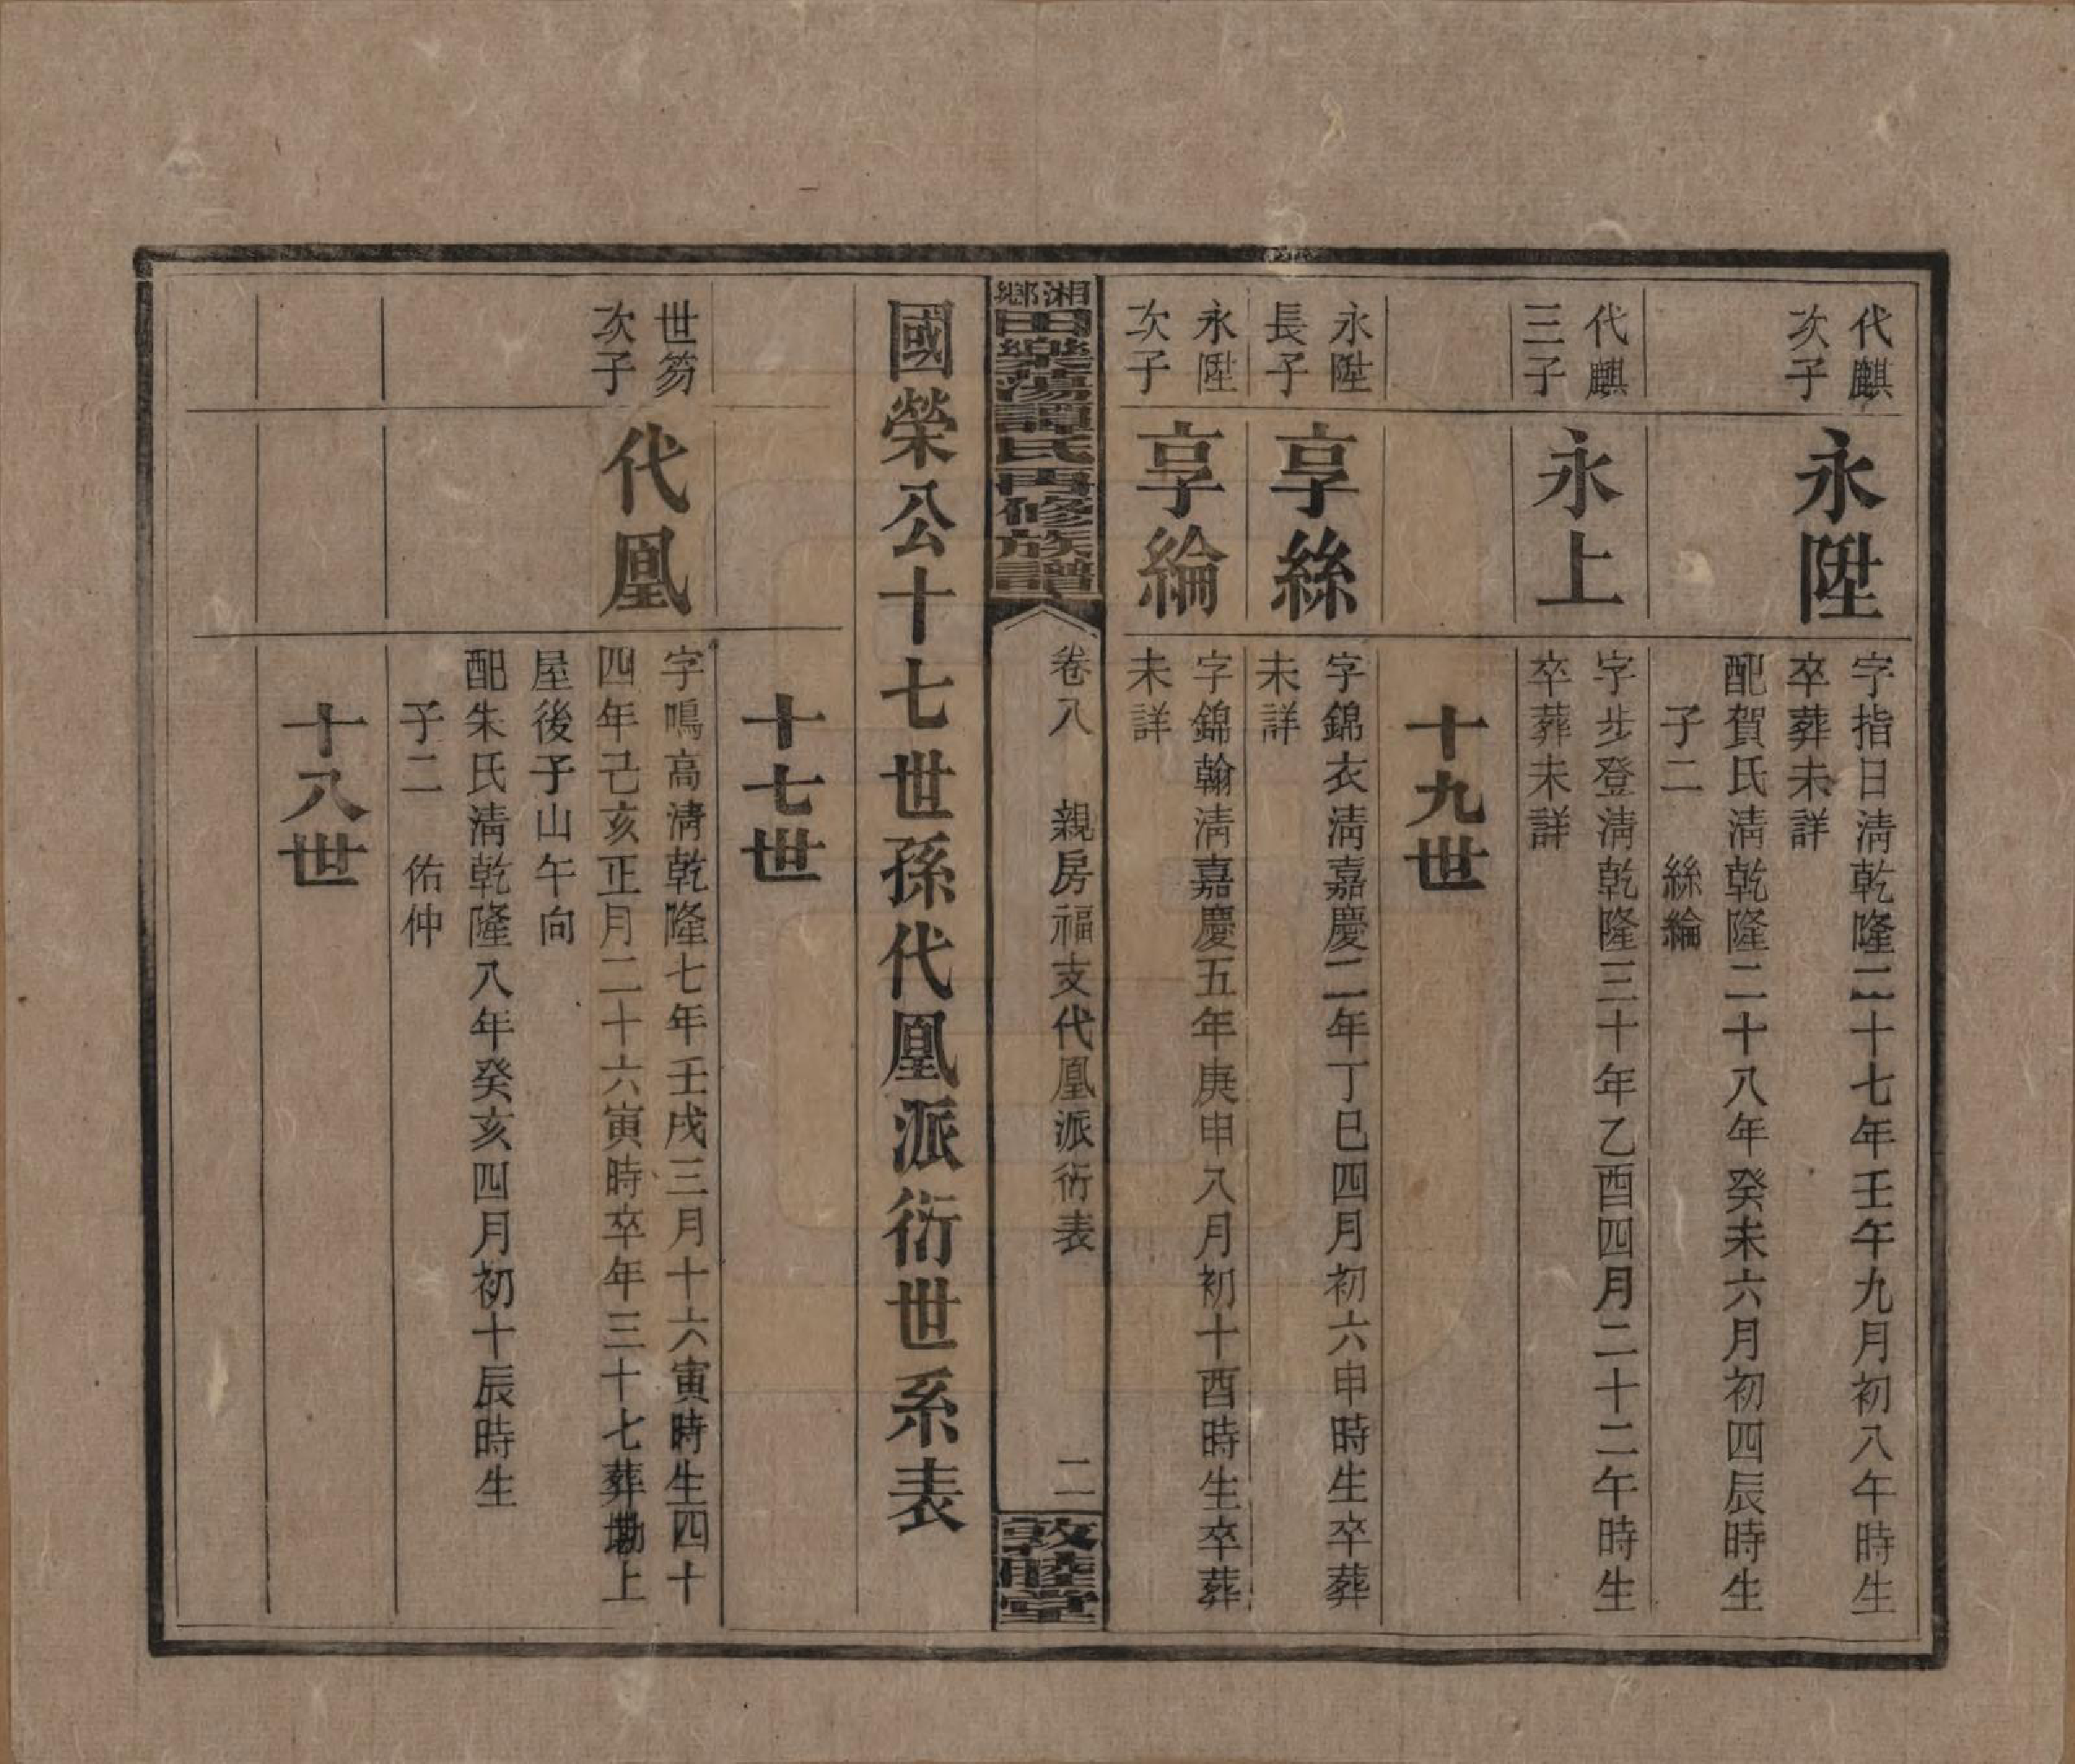 代麒
次子
永陞
字指日淸乾隆二十七年壬午九月初八午時生
卒葬未詳
配賀氏淸乾隆二十八年癸未六月初四辰時生
子二　絲綸
代麒
三子
永上
字步登淸乾隆三十年乙酉四月二十二午時生
卒葬未詳
十九世
永陞
長子
享絲
字錦衣淸嘉慶二年丁巳四月初六申時生卒葬
未詳
永陞
次子
享綸
字錦翰淸嘉慶五年庚申八月初十酉時生卒葬
未詳
湘鄉田樂蕩譚氏再修族譜
卷八　親房福支代凰派衍表
二
敦睦堂
國榮公十七世孫代凰派衍世系表
十七世
世笏
次子
代凰
字鳴高淸乾隆七年壬戌三月十六寅時生四十
四年己亥正月二十六寅時卒年三十七葬墈上
屋後子山午向
配朱氏淸乾隆八年癸亥四月初十辰時生
子二　佑仲
十八世